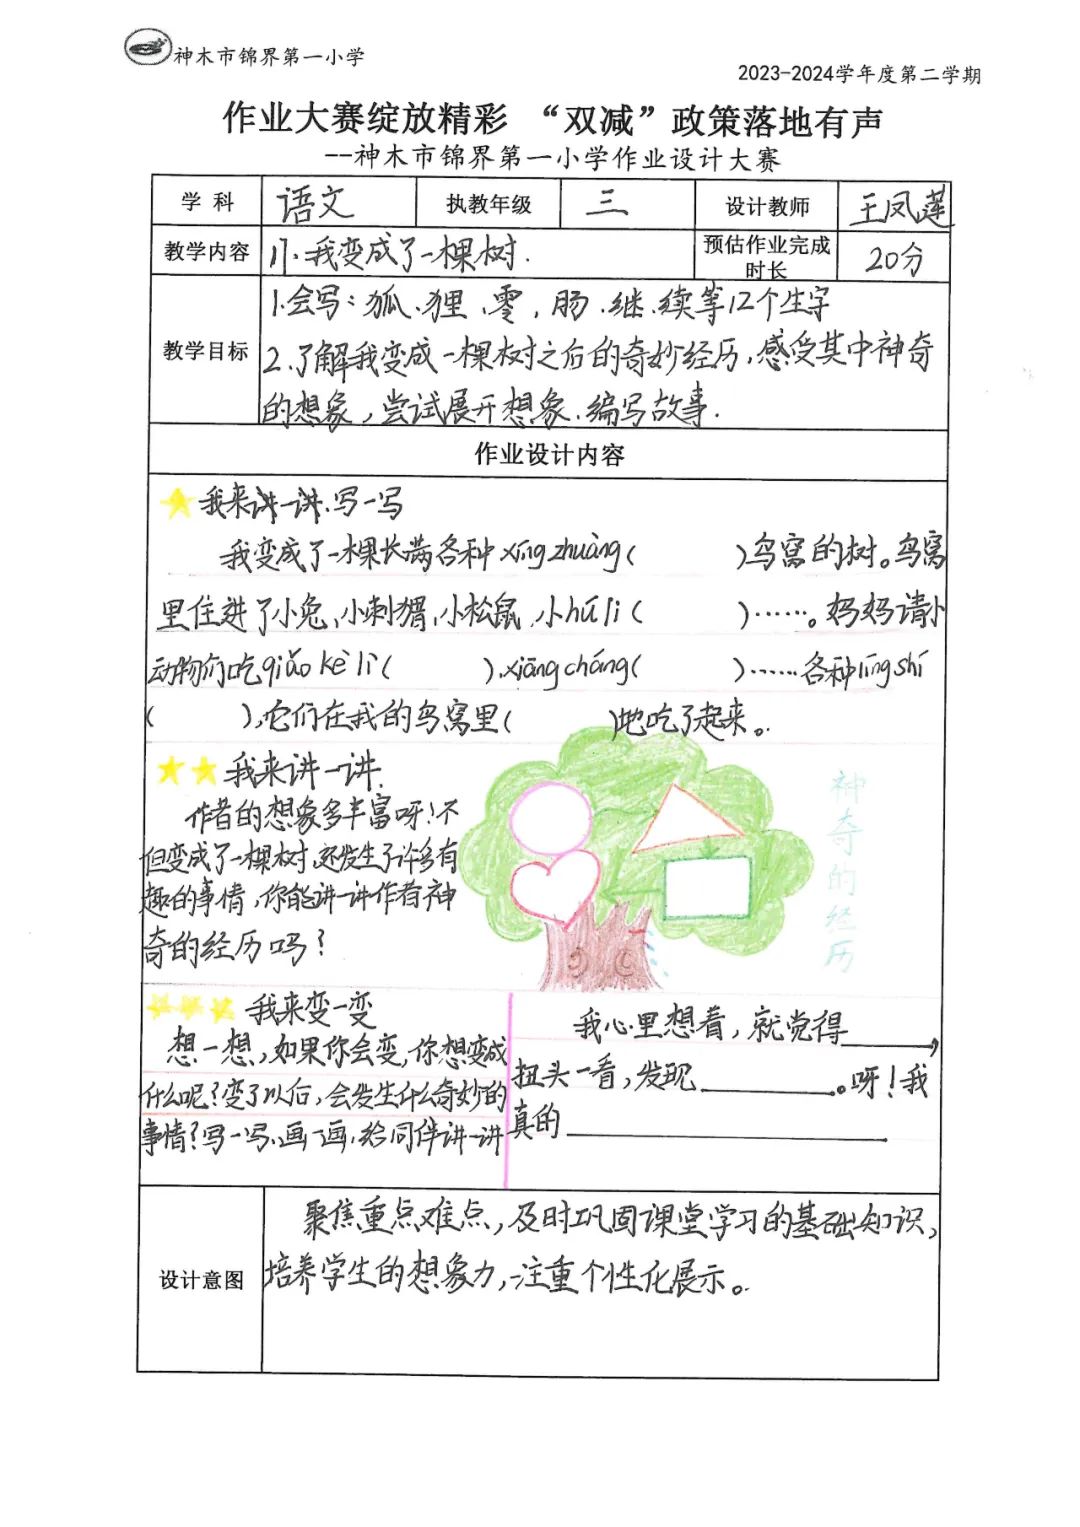 神木市锦界第一小学
2023-2024学年度第二学期
作业大赛绽放精彩 “双减”政策落地有声
--神木市锦界第一小学作业设计大赛
学 科 语文 执教年级 三 设计教师 王凤莲
教学内容 11.我变成了一棵树. 预估作业完成时长 20分
教学目标
1.会写:狐、狸、零,肠、继、续等12个生字
2.了解我变成一棵树之后的奇妙经历,感受其中神奇
的想象,尝试展开想象.编写故事.
作业设计内容
我来讲一讲.写一写
我变成了一棵长满各种xíng zhuàng( )鸟窝的树。鸟窝
里住进了小兔、小刺猬、小松鼠、小hú li( )……。妈妈请小
动物们吃qiǎo kè lì( )、xiāng cháng( )……各种líng shí
( ),它们在我的鸟窝里( )地吃了起来。
我来讲一讲.
作者的想象多丰富呀!不
但变成了一棵树,还发生了许多有
趣的事情,你能讲一讲作者神
奇的经历吗?
神奇的经历
我来变一变
想一想,如果你会变,你想变成
什么呢?变了以后,会发生什么奇妙的
事情?写一写、画一画,给同伴讲一讲
我心里想着,就觉得______,
扭头一看,发现______。呀!我
真的______
设计意图
聚焦重点难点,及时巩固课堂学习的基础知识,
培养学生的想象力,注重个性化展示。